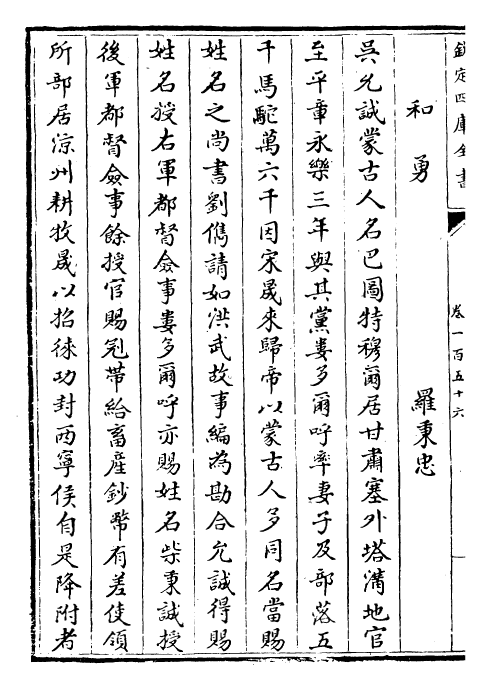 欽定四庫全書
卷一百五十六
和勇　羅秉忠
吳允誠蒙古人名巴圖特穆爾居甘肅塞外塔溝地官
至平章永樂三年與其黨婁多爾呼率妻子及部落五
千馬駝萬六千因宋晟來歸帝以蒙古人多同名當賜
姓名之尚書劉儁請如洪武故事編為勘合允誠得賜
姓名授右軍都督僉事婁多爾呼亦賜姓名柴秉誠授
後軍都督僉事餘授官賜冠帶給畜產鈔幣有差使領
所部居涼州耕牧晟以招徠功封西寧侯自是降附者